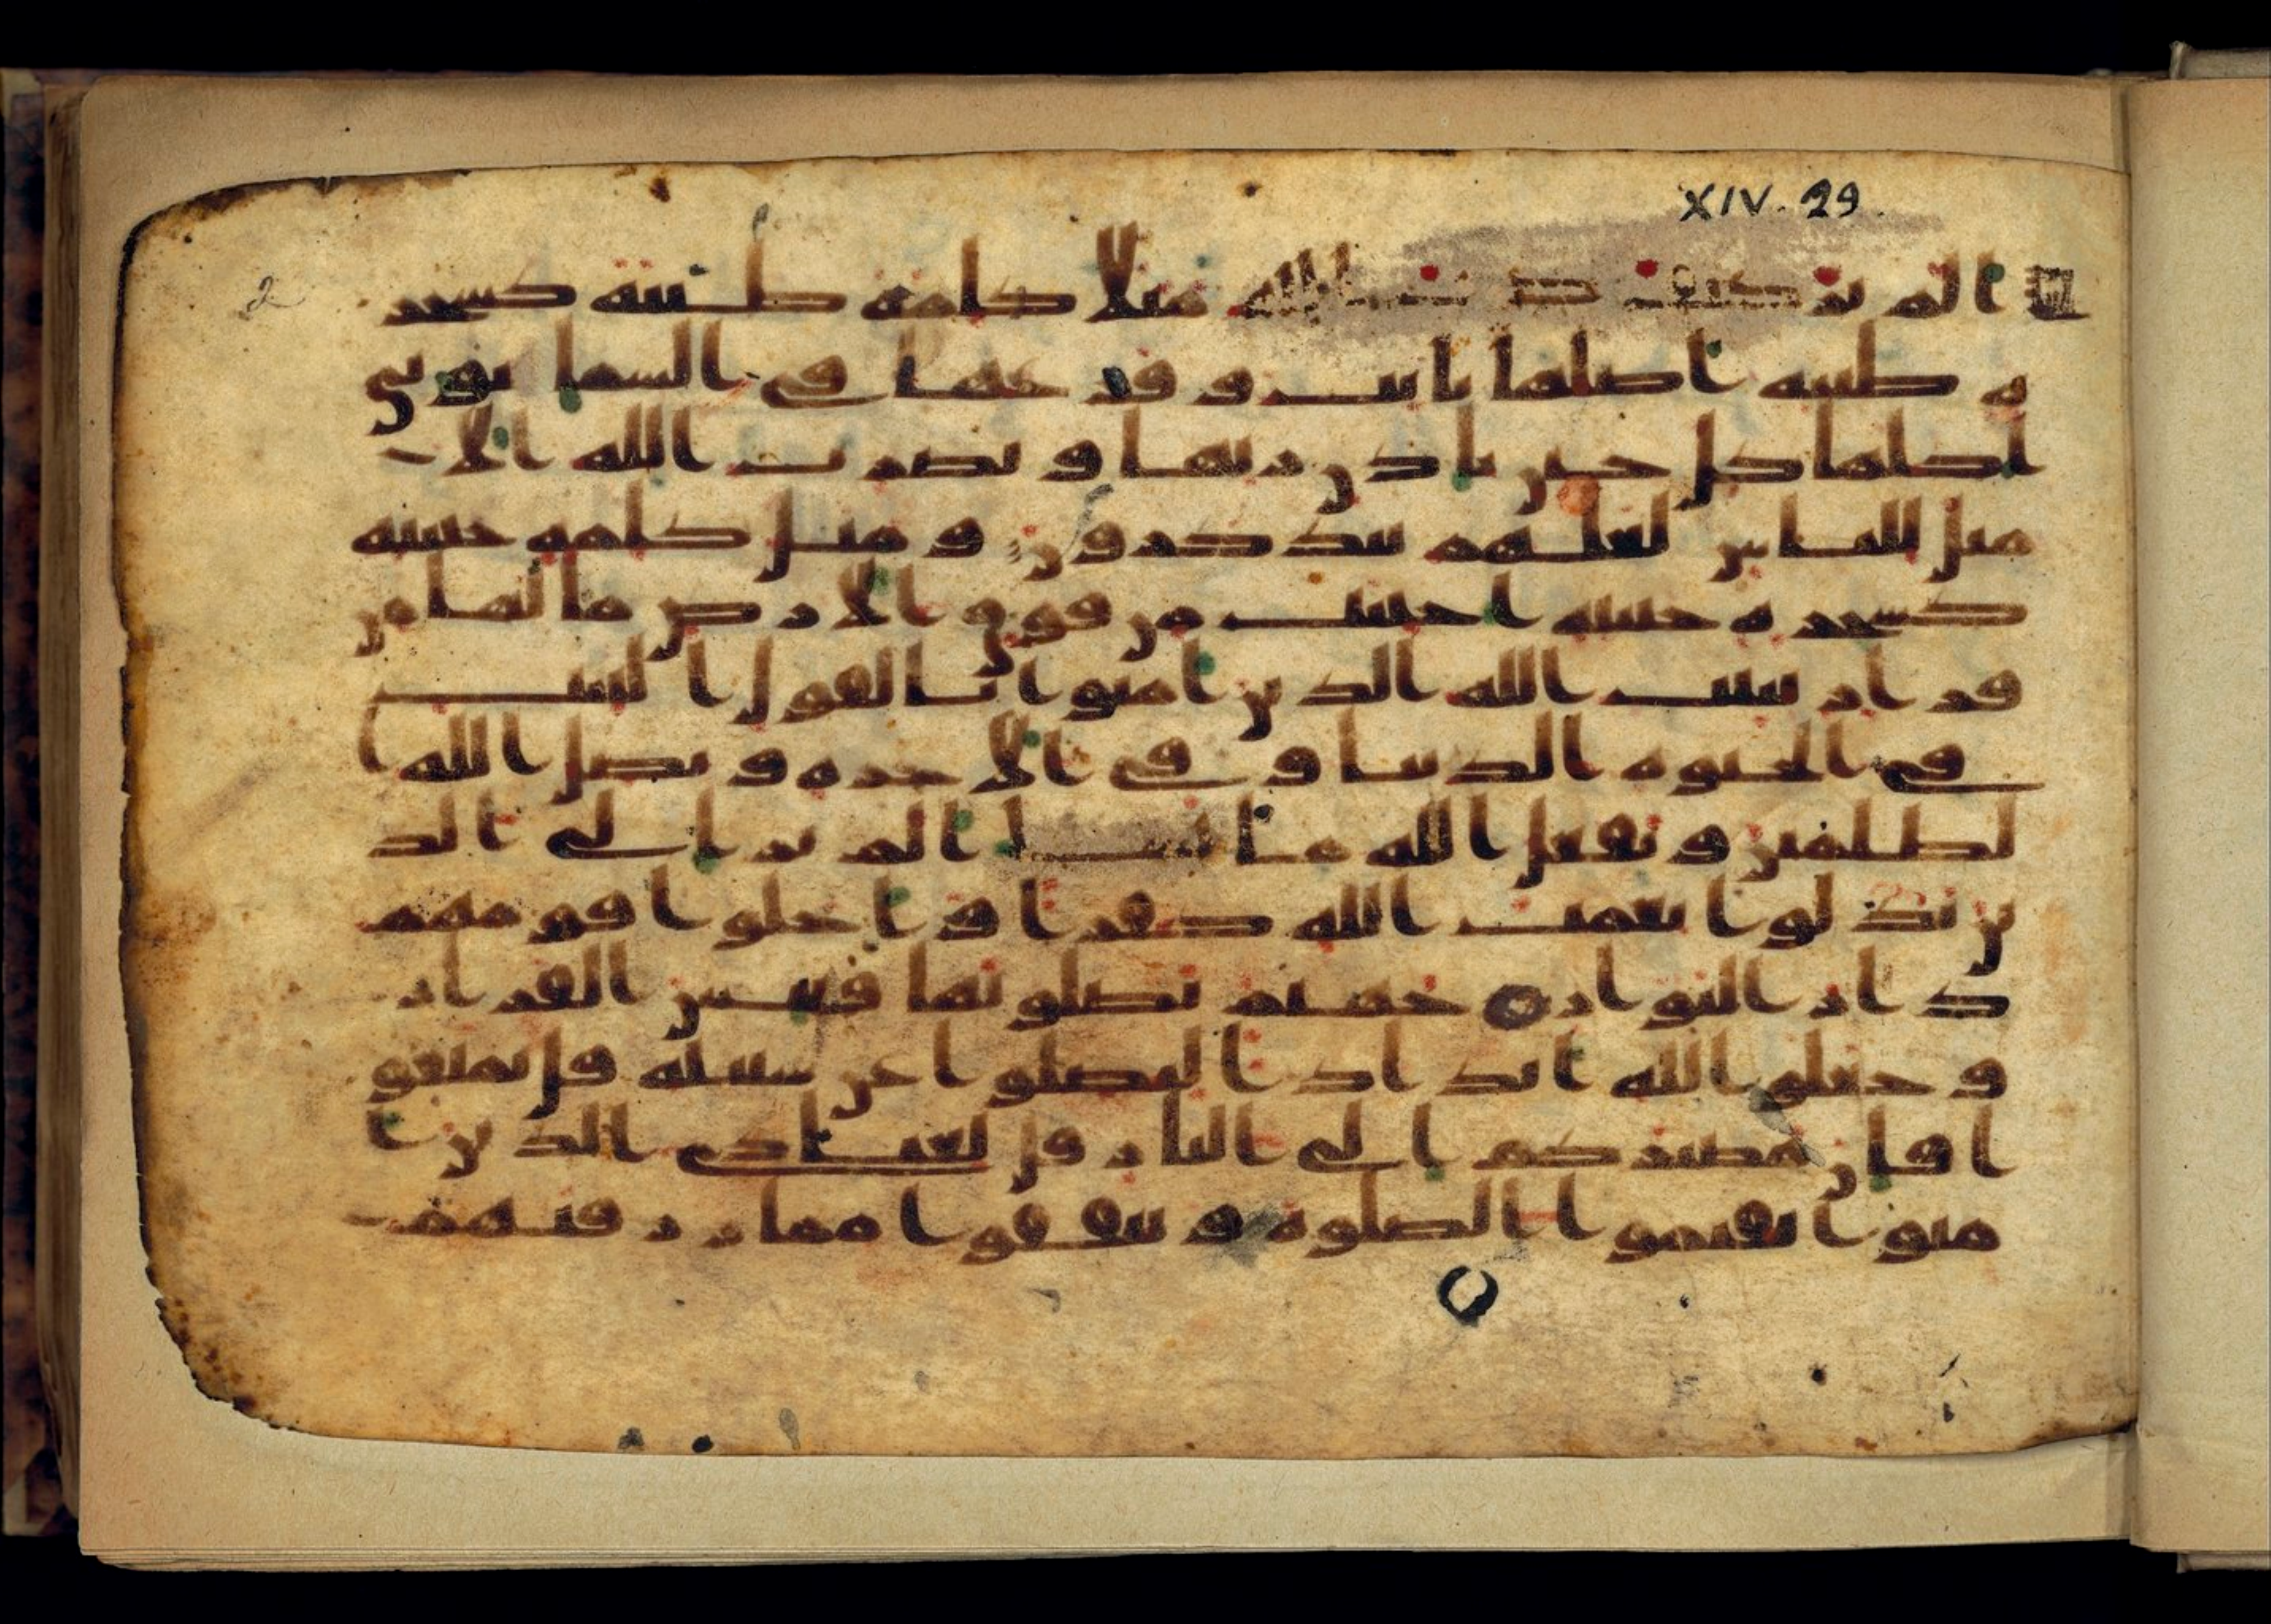 XIV. 29.
2
الم تر كيف ضرب الله مثلا كلمة طيبة كشجر
ة طيبة اصلها ثابت و فرعها في السما توتي
اكلها كل حين باذن ربها و يضرب الله الا
مثل للناس لعلهم يتذكرون و مثل كلمة خبيثة
كشجرة خبيثة اجتثت من فوق الارض ما لها من
قرار يثبت الله الذين امنوا بالقول الثبت
في الحيوة الدنيا و في الاخرة و يضل الله ا
لظلمين و يفعل الله ما يشا الم تر الى الذ
ين بدلوا نعمت الله كفرا و احلوا قومهم
دار البوار جهنم يصلونها فبيس القرار
و جعلوا لله اندادا ليضلوا عن سبيله قل تمتعو
ا فان مصيركم الى النار قل لعبادي الذين ا
منوا يقيموا الصلوة و ينفقوا مما رزقنهم